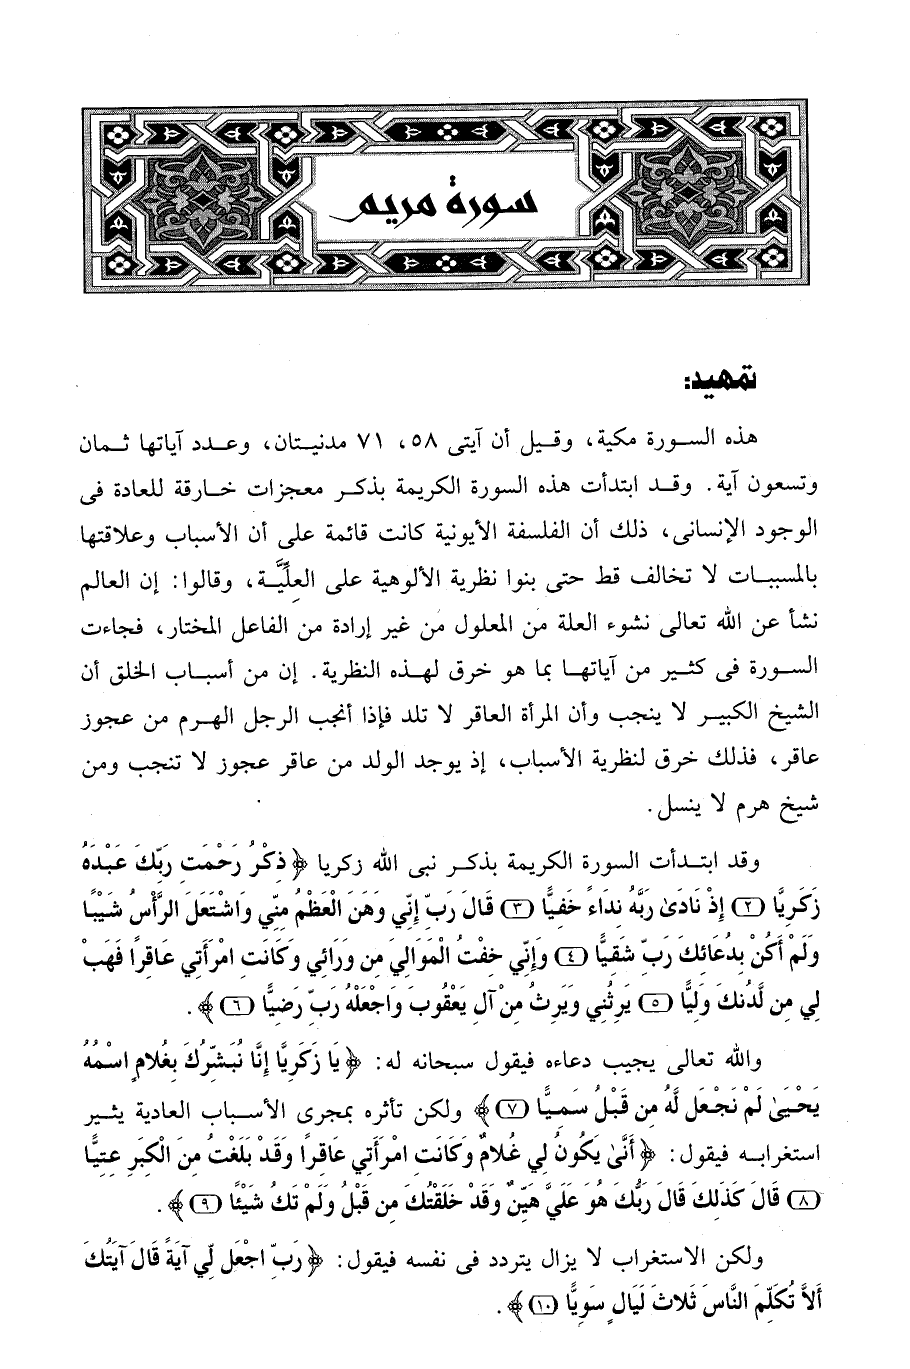 سورة مريم
تمهيد:
هذه السورة مكية، وقيل أن آيتى ٥٨، ٧١ مدنيتان، وعدد آياتها ثمان
وتسعون آية. وقد ابتدأت هذه السورة الكريمة بذكر معجزات خارقة للعادة فى
الوجود الإنسانى، ذلك أن الفلسفة الأيونية كانت قائمة على أن الأسباب وعلاقتها
بالمسببات لا تخالف قط حتى بنوا نظرية الألوهية على العلِّيَّة، وقالوا: إن العالم
نشأ عن الله تعالى نشوء العلة من المعلول من غير إرادة من الفاعل المختار، فجاءت
السورة فى كثير من آياتها بما هو خرق لهذه النظرية. إن من أسباب الخلق أن
الشيخ الكبير لا ينجب وأن المرأة العاقر لا تلد فإذا أنجب الرجل الهرم من عجوز
عاقر، فذلك خرق لنظرية الأسباب، إذ يوجد الولد من عاقر عجوز لا تنجب ومن
شيخ هرم لا ينسل.
وقد ابتدأت السورة الكريمة بذكر نبى الله زكريا ﴿ذِكْرُ رَحْمَتِ رَبِّكَ عَبْدَهُ
زَكَرِيَّا (٢) إِذْ نَادَىٰ رَبَّهُ نِدَاءً خَفِيًّا (٣) قَالَ رَبِّ إِنِّي وَهَنَ الْعَظْمُ مِنِّي وَاشْتَعَلَ الرَّأْسُ شَيْبًا
وَلَمْ أَكُنْ بِدُعَائِكَ رَبِّ شَقِيًّا (٤) وَإِنِّي خِفْتُ الْمَوَالِيَ مِن وَرَائِي وَكَانَتِ امْرَأَتِي عَاقِرًا فَهَبْ
لِي مِن لَّدُنكَ وَلِيًّا (٥) يَرِثُنِي وَيَرِثُ مِنْ آلِ يَعْقُوبَ وَاجْعَلْهُ رَبِّ رَضِيًّا (٦)﴾.
والله تعالى يجيب دعاءه فيقول سبحانه له: ﴿يَا زَكَرِيَّا إِنَّا نُبَشِّرُكَ بِغُلامٍ اسْمُهُ
يَحْيَىٰ لَمْ نَجْعَل لَّهُ مِن قَبْلُ سَمِيًّا (٧)﴾ ولكن تأثره بمجرى الأسباب العادية يثير
استغرابه فيقول: ﴿أَنَّىٰ يَكُونُ لِي غُلامٌ وَكَانَتِ امْرَأَتِي عَاقِرًا وَقَدْ بَلَغْتُ مِنَ الْكِبَرِ عِتِيًّا
(٨) قَالَ كَذَلِكَ قَالَ رَبُّكَ هُوَ عَلَيَّ هَيِّنٌ وَقَدْ خَلَقْتُكَ مِن قَبْلُ وَلَمْ تَكُ شَيْئًا (٩)﴾.
ولكن الاستغراب لا يزال يتردد فى نفسه فيقول: ﴿رَبِّ اجْعَل لِّي آيَةً قَالَ آيَتُكَ
أَلاَّ تُكَلِّمَ النَّاسَ ثَلاثَ لَيَالٍ سَوِيًّا (١٠)﴾.